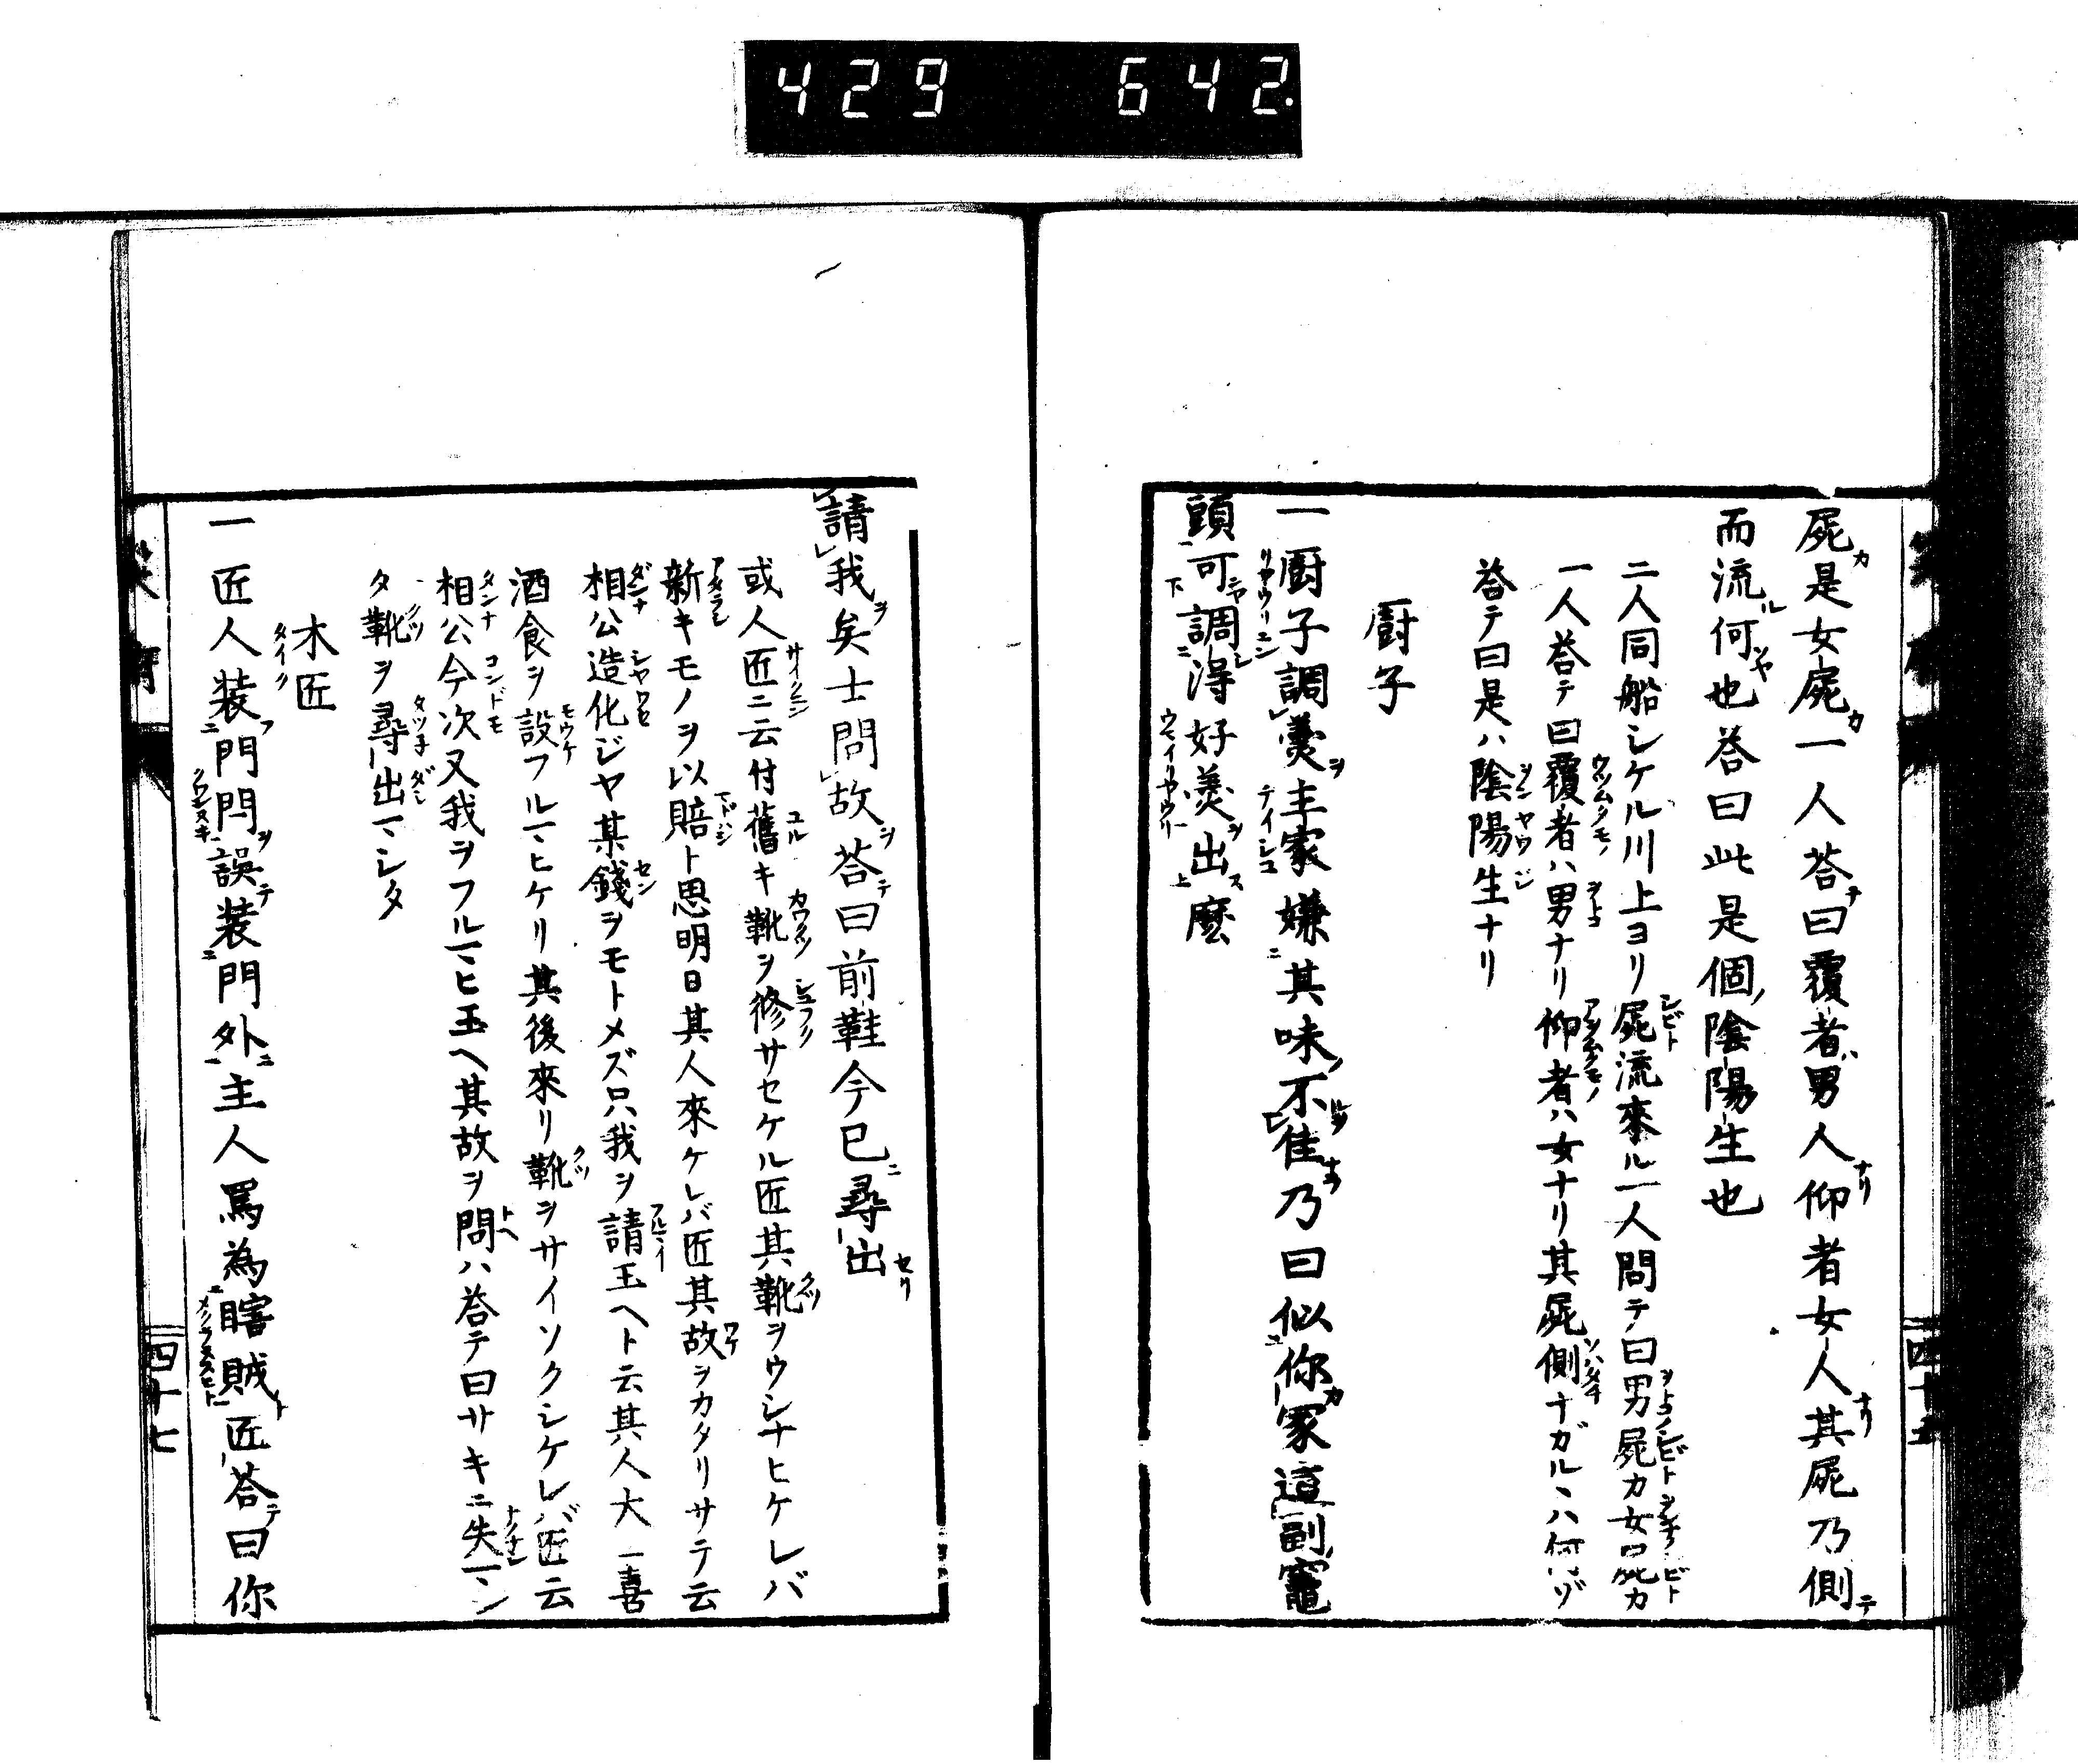 429 642.
屍是女屍一人荅曰覆者男人仰者女人其屍乃側
而流何也荅曰此是個陰陽生也
二人同船シケル川上ヨリ屍流來ル一人問テ曰男屍カ女屍カ
一人荅テ曰覆者ハ男ナリ仰者ハ女ナリ其屍側ナガルヽハ何ゾ
荅テ曰是ハ陰陽生ナリ
厨子
一厨子調羮主家嫌其味不佳乃曰似你家這副竈
頭可調得好羮出麼
四十五
請我矣士問故荅曰前鞋今已尋出
或人匠ニ云付舊キ靴ヲ修サセケル匠其靴ヲウシナヒケレバ
新キモノヲ以賠ト思明日其人來ケレバ匠其故ヲカタリサテ云
相公造化ジヤ某錢ヲモトメズ只我ヲ請玉ヘト云其人大ニ喜
酒食ヲ設フルヿヒケリ其後來リ靴ヲサイソクシケレバ匠云
相公今次又我ヲフルヿヒ玉ヘ其故ヲ問ハ荅テ曰サキニ失ヿシ
タ靴ヲ尋出ヿシタ
木匠
一匠人装門閂誤装門外主人罵為瞎賊匠荅曰你
四十七